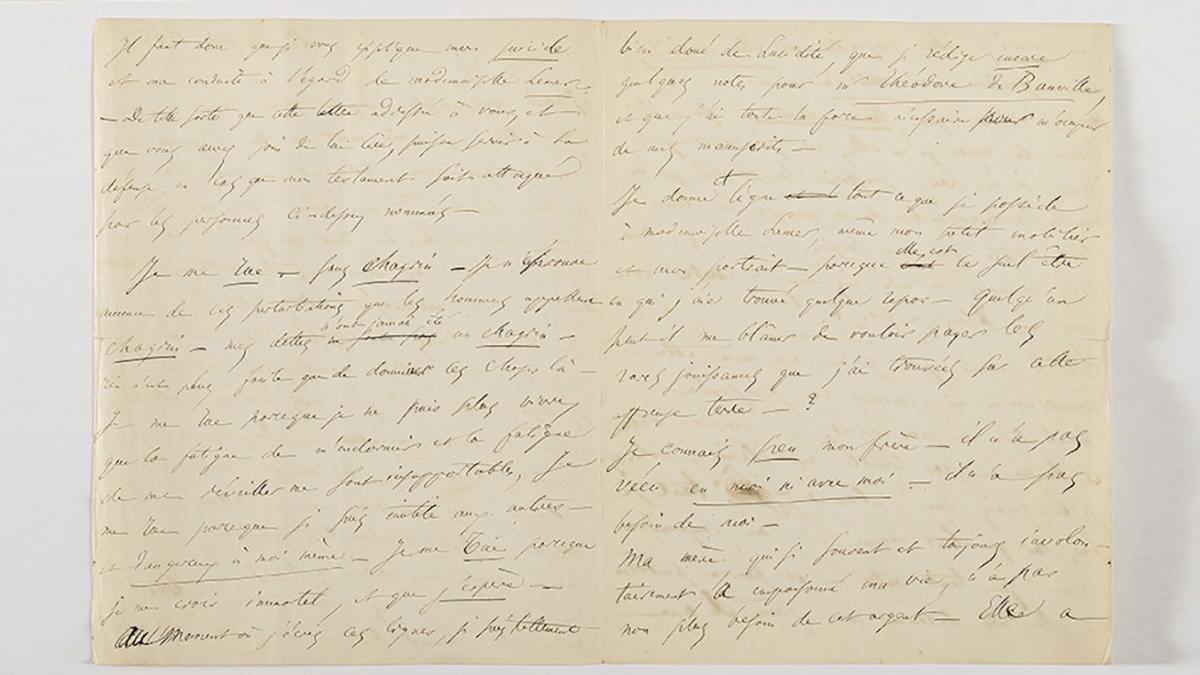 Il faut donc que je vous explique mon suicide
et ma conduite à l'égard de mademoiselle Lemer.
— De telle sorte que cette lettre adressée à vous, et
que vous aurez soin de lui lire, puisse servir à sa
défense, en cas que mon testament soit attaqué
par les personnes ci-dessus nommées —
Je me tue — sans chagrin — Je n'éprouve
aucune de ces perturbations que les hommes appellent
n'ont jamais été
chagrin — mes dettes un chagrin —
rien n'est plus facile que de dominer ces choses là —
Je me tue parceque je ne puis plus vivre,
que la fatigue de m'endormir et la fatigue
de me réveiller me sont insupportables, Je
me tue parceque je suis inutile aux autres —
et dangereux à moi même — Je me tue parceque
je me crois immortel, et que j'espère —
Au Moment où j'écris ces lignes, je suis tellement
bien doué de lucidité, que je rédige encore
quelques notes pour mr Théodore de Banville,
et que j'ai toute la force nécessaire pour m'occuper
de mes manuscrits —
Je donne et lègue tout ce que je possède
à mademoiselle Lemer, même mon petit mobilier
et mon portrait — parceque elle est le seul être
en qui j'aie trouvé quelque repos — Quelqu'un
peut-il me blâmer de vouloir payer les
rares jouissances que j'ai trouvées sur cette
affreuse terre — ?
Je connais peu mon frère — il n'a pas
vécu en moi ni avec moi — il n'a pas
besoin de moi —
Ma mère qui si souvent et toujours involon-
tairement a empoisonné ma vie, n'a pas
non plus besoin de cet argent — Elle a